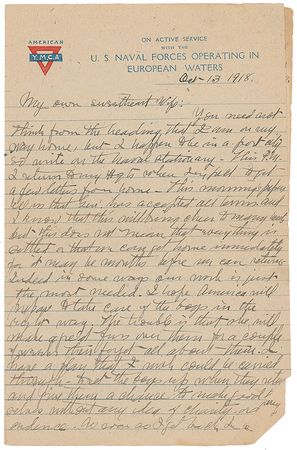 AMERICAN
Y.M.C.A
ON ACTIVE SERVICE
WITH THE
U. S. NAVAL FORCES OPERATING IN
EUROPEAN WATERS
Oct 13 1918.
My own sweetheart Wife:
You need not
think from the heading that I am on my
way home, but I happen to be in a port city
& write on the Naval stationary - This P.M.
I return to my
a few letters from home - This morning's paper
tells us that Ger. has accepted all terms and
I know that this will bring cheer to many
but this does not mean that everything is
settled or that we can get home immediately
for it may be months before we can return
Indeed in some ways our work is just
the most needed. I hope America will
prepare to take care of the boys in the
right way. The trouble is that she will
make a great fuss over them for a couple
of weeks then forget all about them. I
have a plan that I wish could be carried
through - Let the boys up when they
and give them a chance to make good
without any idea of charity or
as I get back